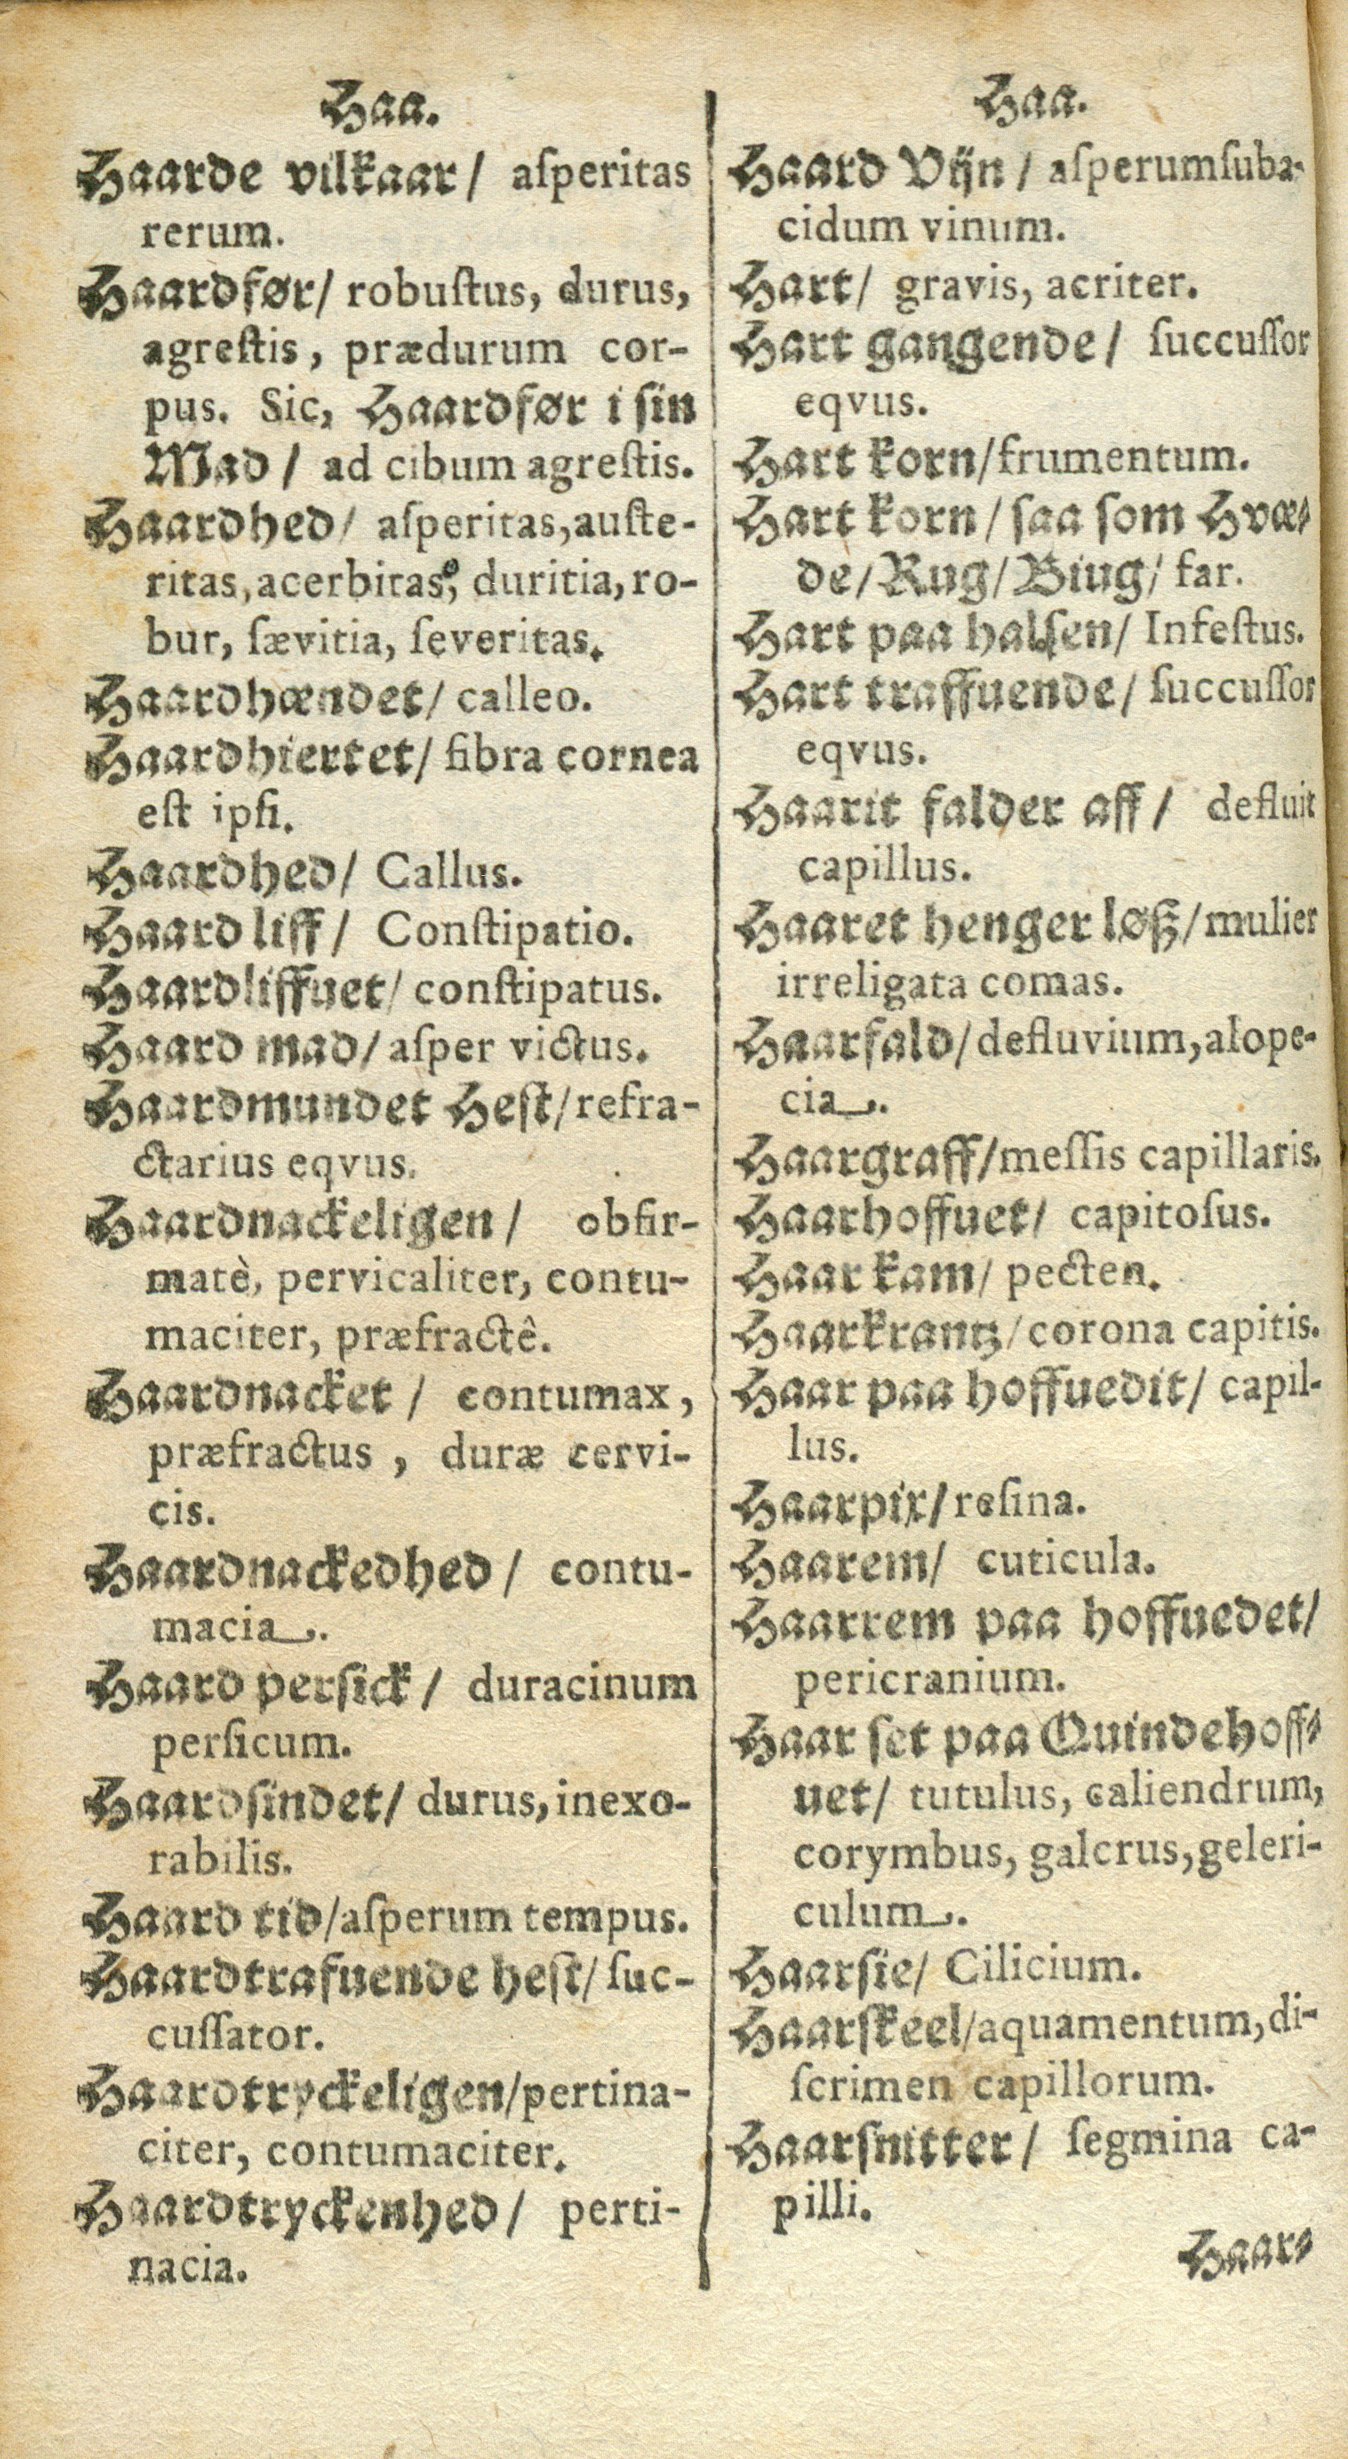 Haa.
Haarde vilkaar/ aſperitas
rerum.
Haardfør/ robuſtus, durus,
agreſtis, prædurum cor-
pus. Sic, Haardfør i ſin
Mad/ ad cibum agreſtis.
Haardhed/ aſperitas, auſte-
ritas, acerbitas, duritia, ro-
bur, ſævitia, ſeveritas.
Haardhændet/ calleo.
Haardhiertet/ fibra cornea
eſt ipſi.
Haardhed/ Callus.
Haard liff/ Conſtipatio.
Haardliffuet/ conſtipatus.
Haard mad/ aſper victus.
Haardmundet Heſt/ refra-
ctarius eqvus.
Haardnackeligen/ obfir-
matè, pervicaliter, contu-
maciter, præfractê.
Haardnacket/ contumax,
præfractus, duræ cervi-
cis.
Haardnackedhed/ contu-
macia.
Haard perſick/ duracinum
perſicum.
Haardſindet/ durus, inexo-
rabilis.
Haard tid/ aſperum tempus.
Haardtrafuende heſt/ ſuc-
cuſſator.
Haardtryckeligen/ pertina-
citer, contumaciter.
Haardtryckenhed/ perti-
nacia.
Haa.
Haard Vijn/ aſperumſuba-
cidum vinum.
Hart/ gravis, acriter.
Hart gangende/ ſuccuſſor
eqvus.
Hart korn/ frumentum.
Hart korn/ ſaa ſom Hvæ-
de/ Rug/ Biug/ far.
Hart paa halſen/ Infeſtus.
Hart traffuende/ ſuccuſſor
eqvus.
Haarit falder aff/ defluit
capillus.
Haaret henger løß/ mulier
irreligata comas.
Haarfald/ defluvium, alope-
cia.
Haargraff/ meſſis capillaris.
Haarhoffuet/ capitoſus.
Haar kam/ pecten.
Haarkrantz/ corona capitis.
Haar paa hoffuedit/ capil-
lus.
Haarpix/ reſina.
Haarem/ cuticula.
Haarrem paa hoffuedet/
pericranium.
Haar ſet paa Quindehoff-
uet/ tutulus, caliendrum,
corymbus, galerus, geleri-
culum.
Haarſie/ Cilicium.
Haarſkeel/ aquamentum, di-
ſcrimen capillorum.
Haarſnitter/ ſegmina ca-
pilli.
Haar-